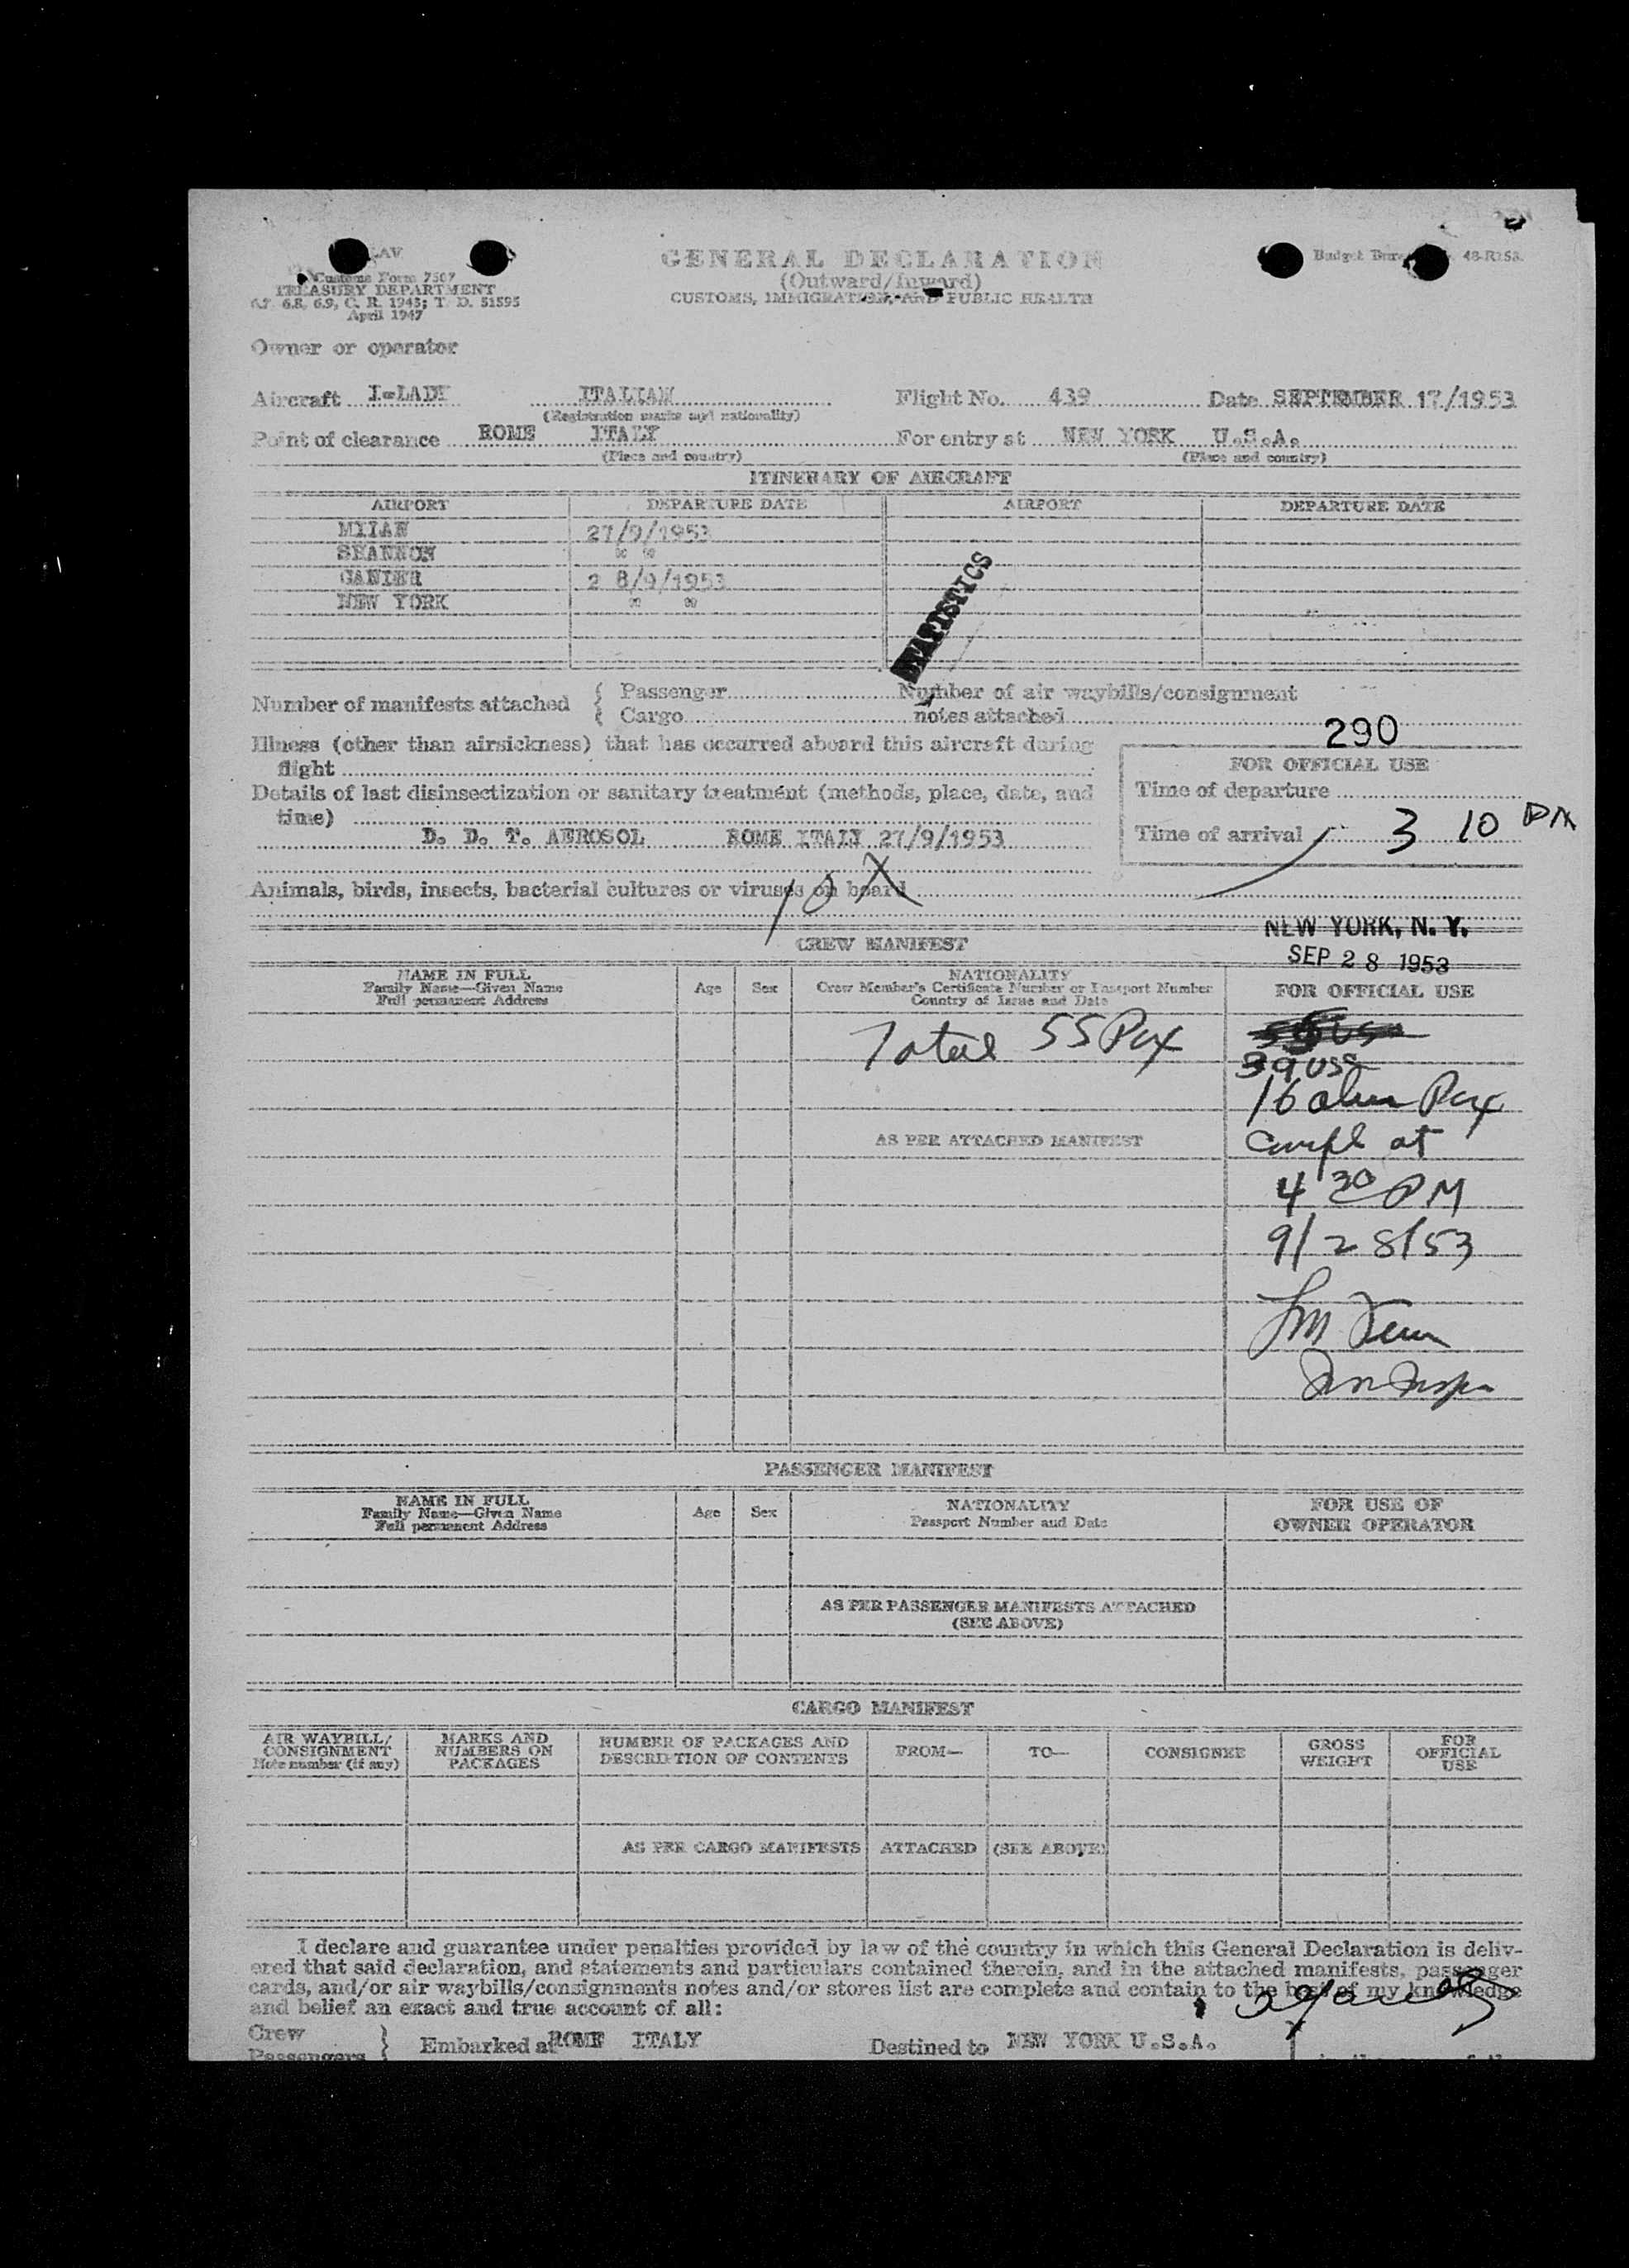 LAV
Customs Form 7507
TREASURY DEPARTMENT
6.8, 6.9, C. R. 1943; T. D. 51595
April 1947
GENERAL DECLARATION
(Outward/Inward)
CUSTOMS, IMMIGRATION, AND PUBLIC HEALTH
Budget 48-R253.
Owner or operator
Aircraft I-LADY ITALIAN Flight No. 439 Date SEPTEMBER 17/1953
(Registration marks and nationality)
Point of clearance ROME ITALY For entry at NEW YORK U.S.A.
(Place and country) (Place and country)
ITINERARY OF AIRCRAFT
AIRPORT DEPARTURE DATE AIRPORT DEPARTURE DATE
MILAN 27/9/1953
SHANNON " "
GANDER 2 8/9/1953
NEW YORK " "
STATISTICS
Number of manifests attached { Passenger Number of air waybills/consignment
Cargo notes attached
290
Illness (other than airsickness) that has occurred aboard this aircraft during
flight
FOR OFFICIAL USE
Details of last disinsectization or sanitary treatment (methods, place, date, and
time)
Time of departure
D. D. T. AEROSOL ROME ITALY 27/9/1953
Time of arrival 3 10 PM
Animals, birds, insects, bacterial cultures or viruses on board
NEW YORK, N. Y.
SEP 28 1953
CREW MANIFEST
NAME IN FULL
Family Name—Given Name
Full permanent Address
Age Sex
NATIONALITY
Crew Member's Certificate Number or Passport Number
Country of Issue and Date
FOR OFFICIAL USE
Total 55 Pax
39 USC
16 alien Pax
AS PER ATTACHED MANIFEST
Compl at
4 30 PM
9/28/53
PASSENGER MANIFEST
NAME IN FULL
Family Name—Given Name
Full permanent Address
Age Sex
NATIONALITY
Passport Number and Date
FOR USE OF
OWNER OPERATOR
AS PER PASSENGER MANIFESTS ATTACHED
(SEE ABOVE)
CARGO MANIFEST
AIR WAYBILL/
CONSIGNMENT
Note number (if any)
MARKS AND
NUMBERS ON
PACKAGES
NUMBER OF PACKAGES AND
DESCRIPTION OF CONTENTS
FROM— TO— CONSIGNEE
GROSS
WEIGHT
FOR
OFFICIAL
USE
AS PER CARGO MANIFESTS ATTACHED (SEE ABOVE)
I declare and guarantee under penalties provided by law of the country in which this General Declaration is deliv-
ered that said declaration, and statements and particulars contained therein, and in the attached manifests, passenger
cards, and/or air waybills/consignments notes and/or stores list are complete and contain to the best of my knowledge
and belief an exact and true account of all:
Crew
Passengers } Embarked at ROME ITALY Destined to NEW YORK U.S.A.